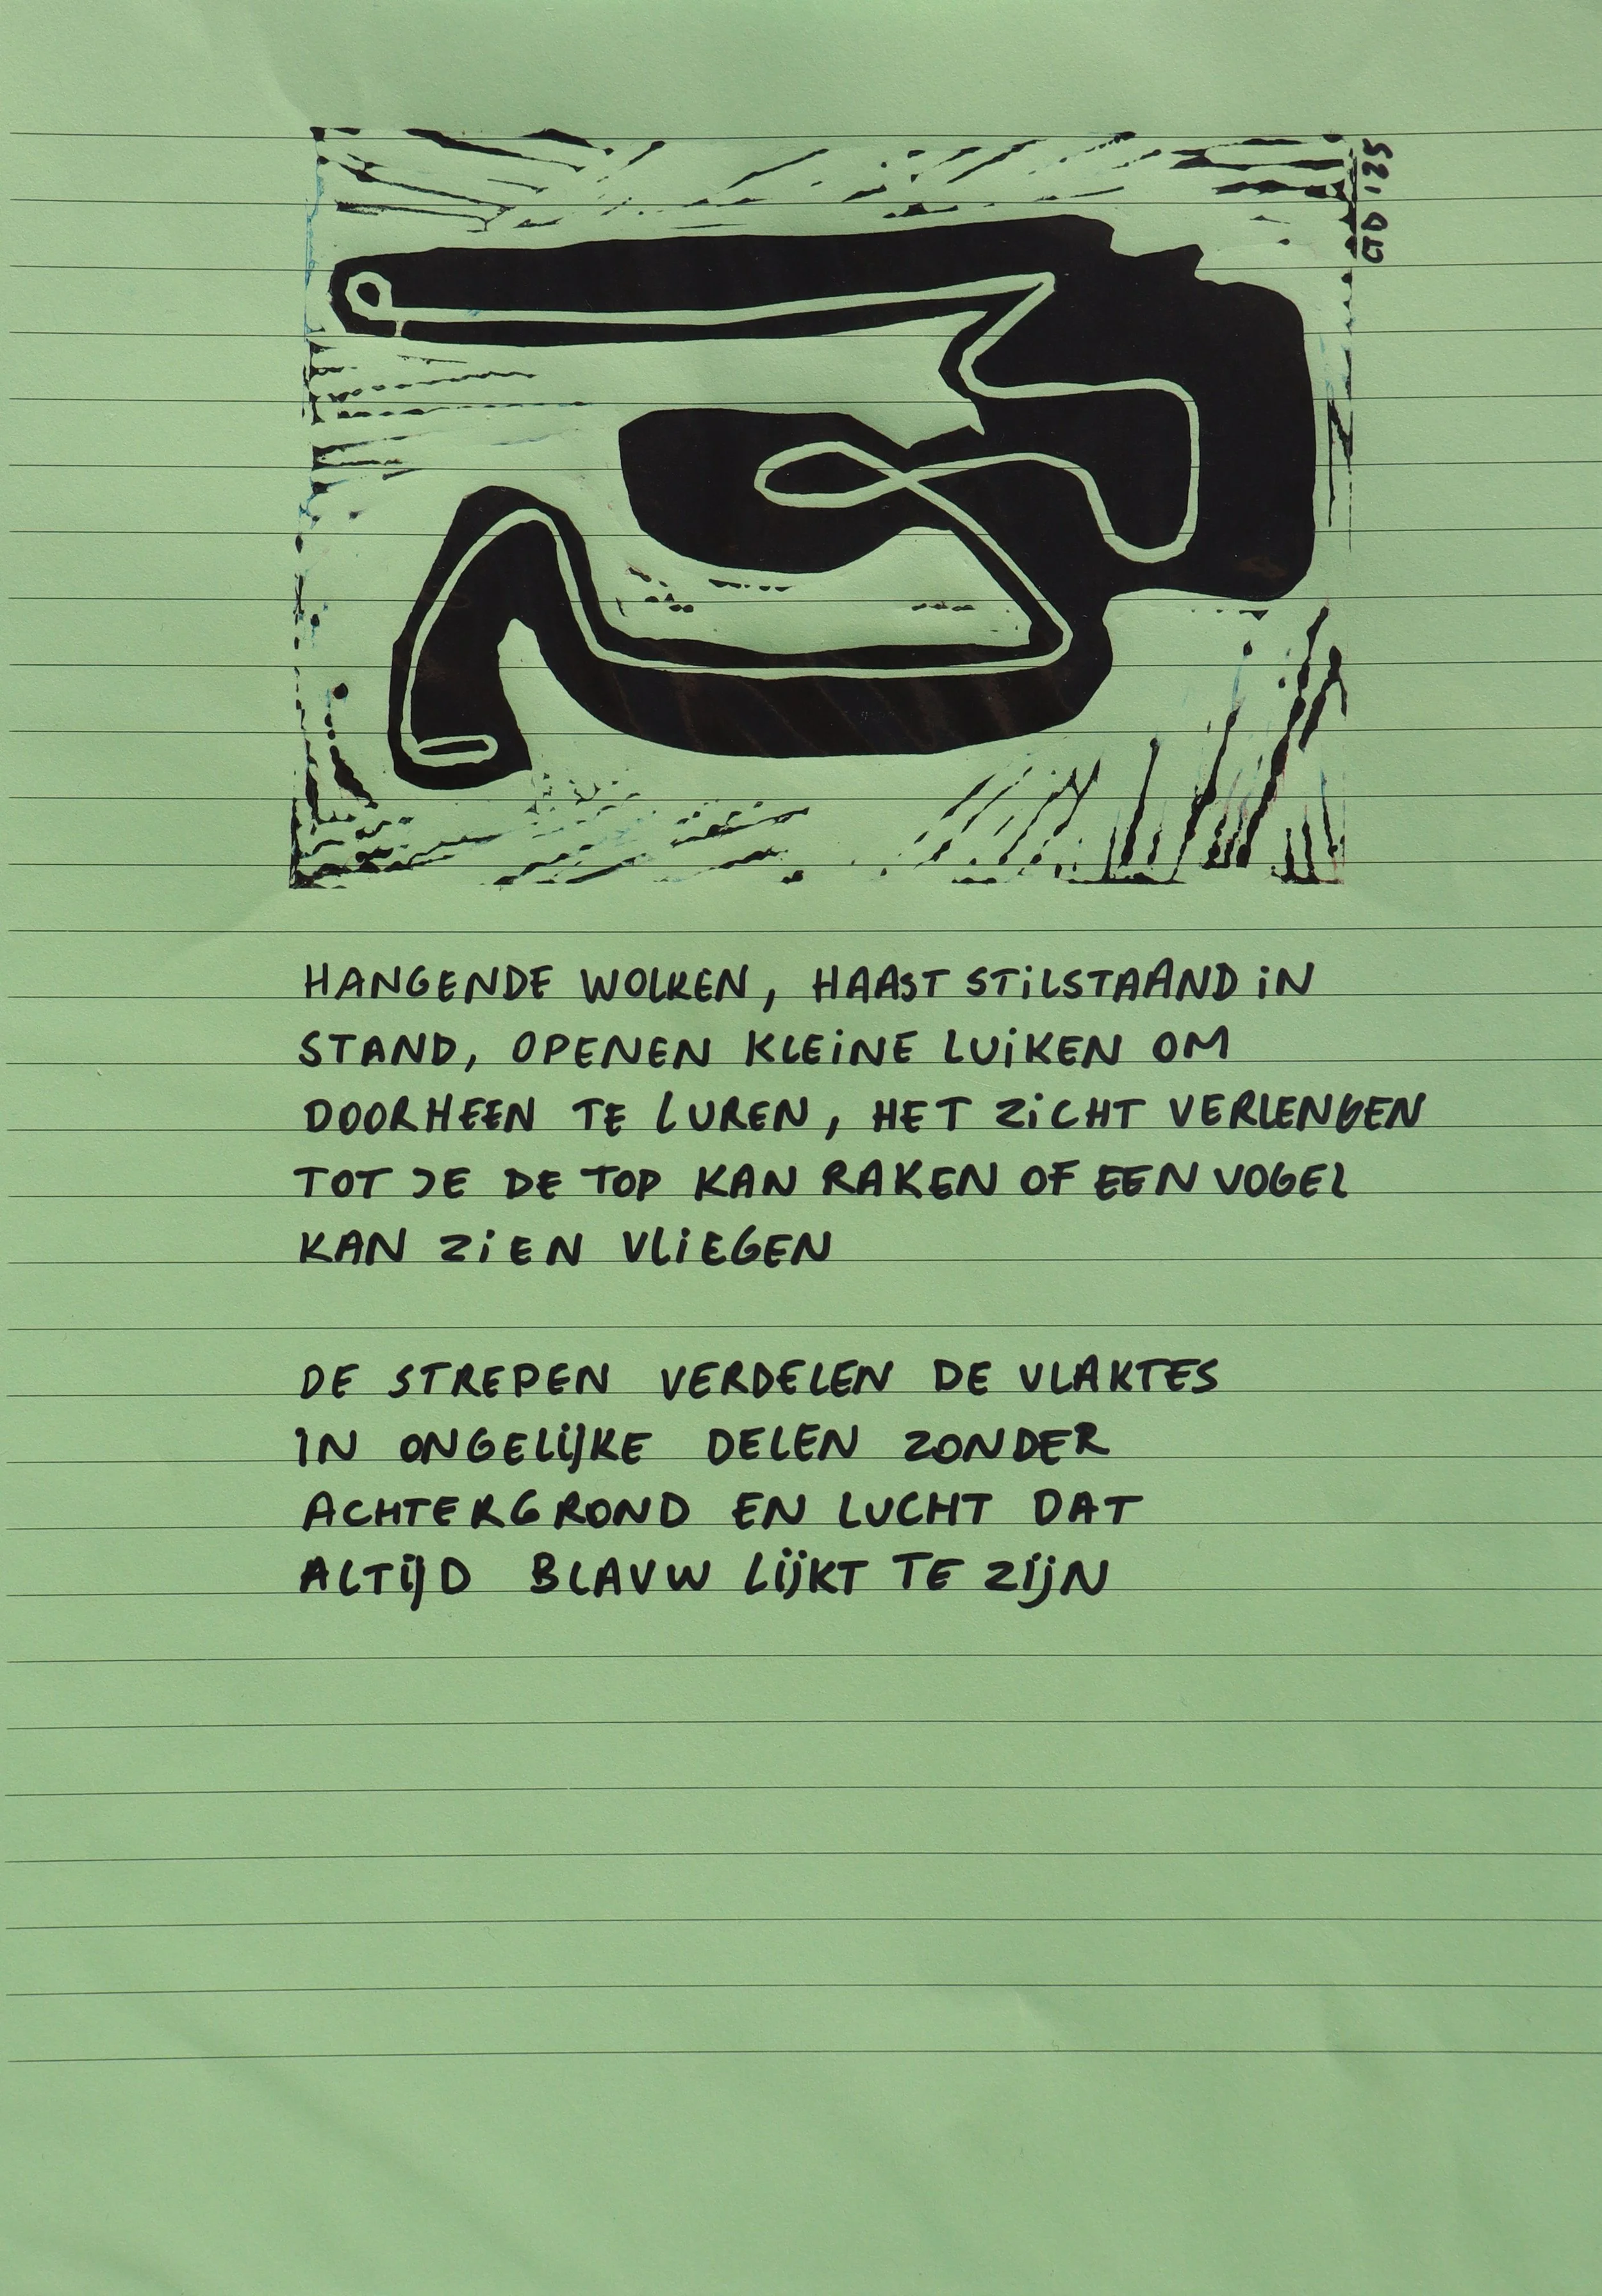 GTD '25
HANGENDE WOLKEN, HAAST STILSTAAND IN
STAND, OPENEN KLEINE LUIKEN OM
DOORHEEN TE LUREN, HET ZICHT VERLENGEN
TOT JE DE TOP KAN RAKEN OF EEN VOGEL
KAN ZIEN VLIEGEN
DE STREPEN VERDELEN DE VLAKTES
IN ONGELIJKE DELEN ZONDER
ACHTERGROND EN LUCHT DAT
ALTIJD BLAUW LIJKT TE ZIJN